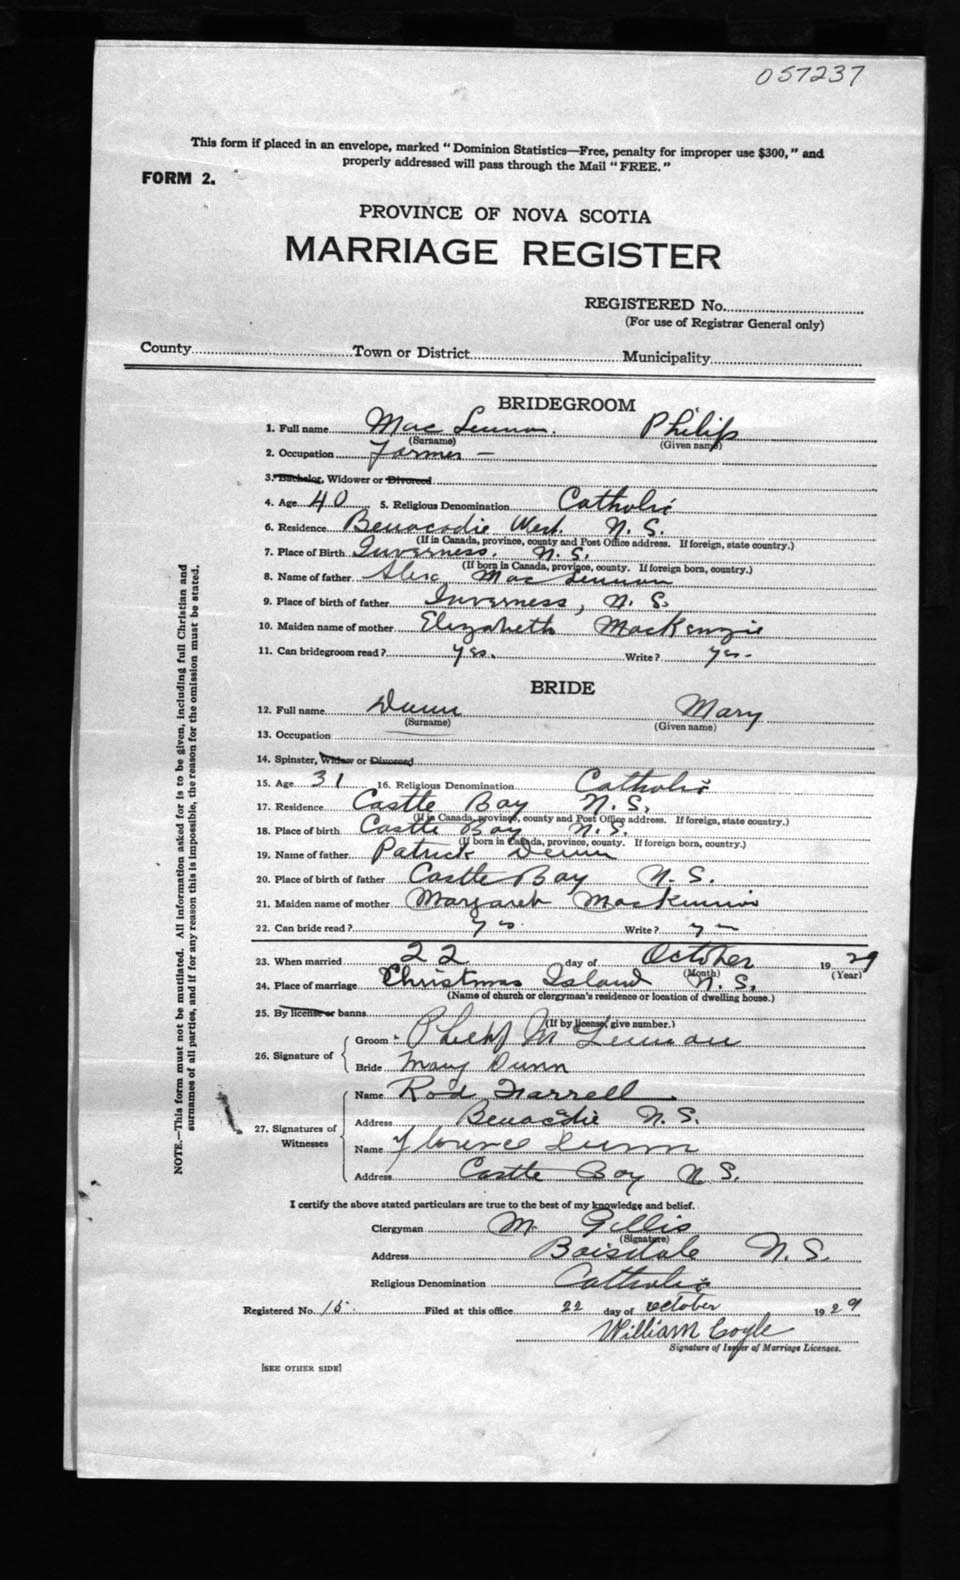 057237
This form if placed in an envelope, marked "Dominion Statistics—Free, penalty for improper use $300," and
properly addressed will pass through the Mail "FREE."
FORM 2.
PROVINCE OF NOVA SCOTIA
MARRIAGE REGISTER
REGISTERED No.
(For use of Registrar General only)
County Town or District Municipality
BRIDEGROOM
1. Full name Mac Lennon. Philip
(Surname) (Given name)
2. Occupation Farmer —
3. Bachelor, Widower or Divorced
4. Age 40 5. Religious Denomination Catholic
6. Residence Benacadie West. N. S.
(If in Canada, province, county and Post Office address. If foreign, state country.)
7. Place of Birth Inverness. N. S.
(If born in Canada, province, county. If foreign born, country.)
8. Name of father Alex Mac Lennon
9. Place of birth of father Inverness, N. S.
10. Maiden name of mother Elizabeth MacKenzie
11. Can bridegroom read? yes. Write? yes.
BRIDE
12. Full name Dunn Mary
(Surname) (Given name)
13. Occupation
14. Spinster, Widow or Divorced
15. Age 31 16. Religious Denomination Catholic
17. Residence Castle Bay N. S.
(If in Canada, province, county and Post Office address. If foreign, state country.)
18. Place of birth Castle Bay N. S.
(If born in Canada, province, county. If foreign born, country.)
19. Name of father Patrick Dunn
20. Place of birth of father Castle Bay N. S.
21. Maiden name of mother Margaret MacKinnon
22. Can bride read? yes Write? yes
23. When married 22 day of October 1929
(Month) (Year)
24. Place of marriage Christmas Island N. S.
(Name of church or clergyman's residence or location of dwelling house.)
25. By license or banns
(If by license, give number.)
26. Signature of Groom Philip McLennan
Bride Mary Dunn
27. Signatures of Witnesses Name Rod Farrell
Address Benacadie N. S.
Name Florence Dunn
Address Castle Bay N. S.
I certify the above stated particulars are true to the best of my knowledge and belief.
Clergyman M. Gillis
(Signature)
Address Boisdale N. S.
Religious Denomination Catholic
Registered No. 15. Filed at this office 22 day of October 1929
William Coyle
Signature of Issuer of Marriage Licenses.
[SEE OTHER SIDE]
NOTE.—This form must not be mutilated. All information asked for is to be given, including full Christian and
surnames of all parties, and if for any reason this is impossible, the reason for the omission must be stated.